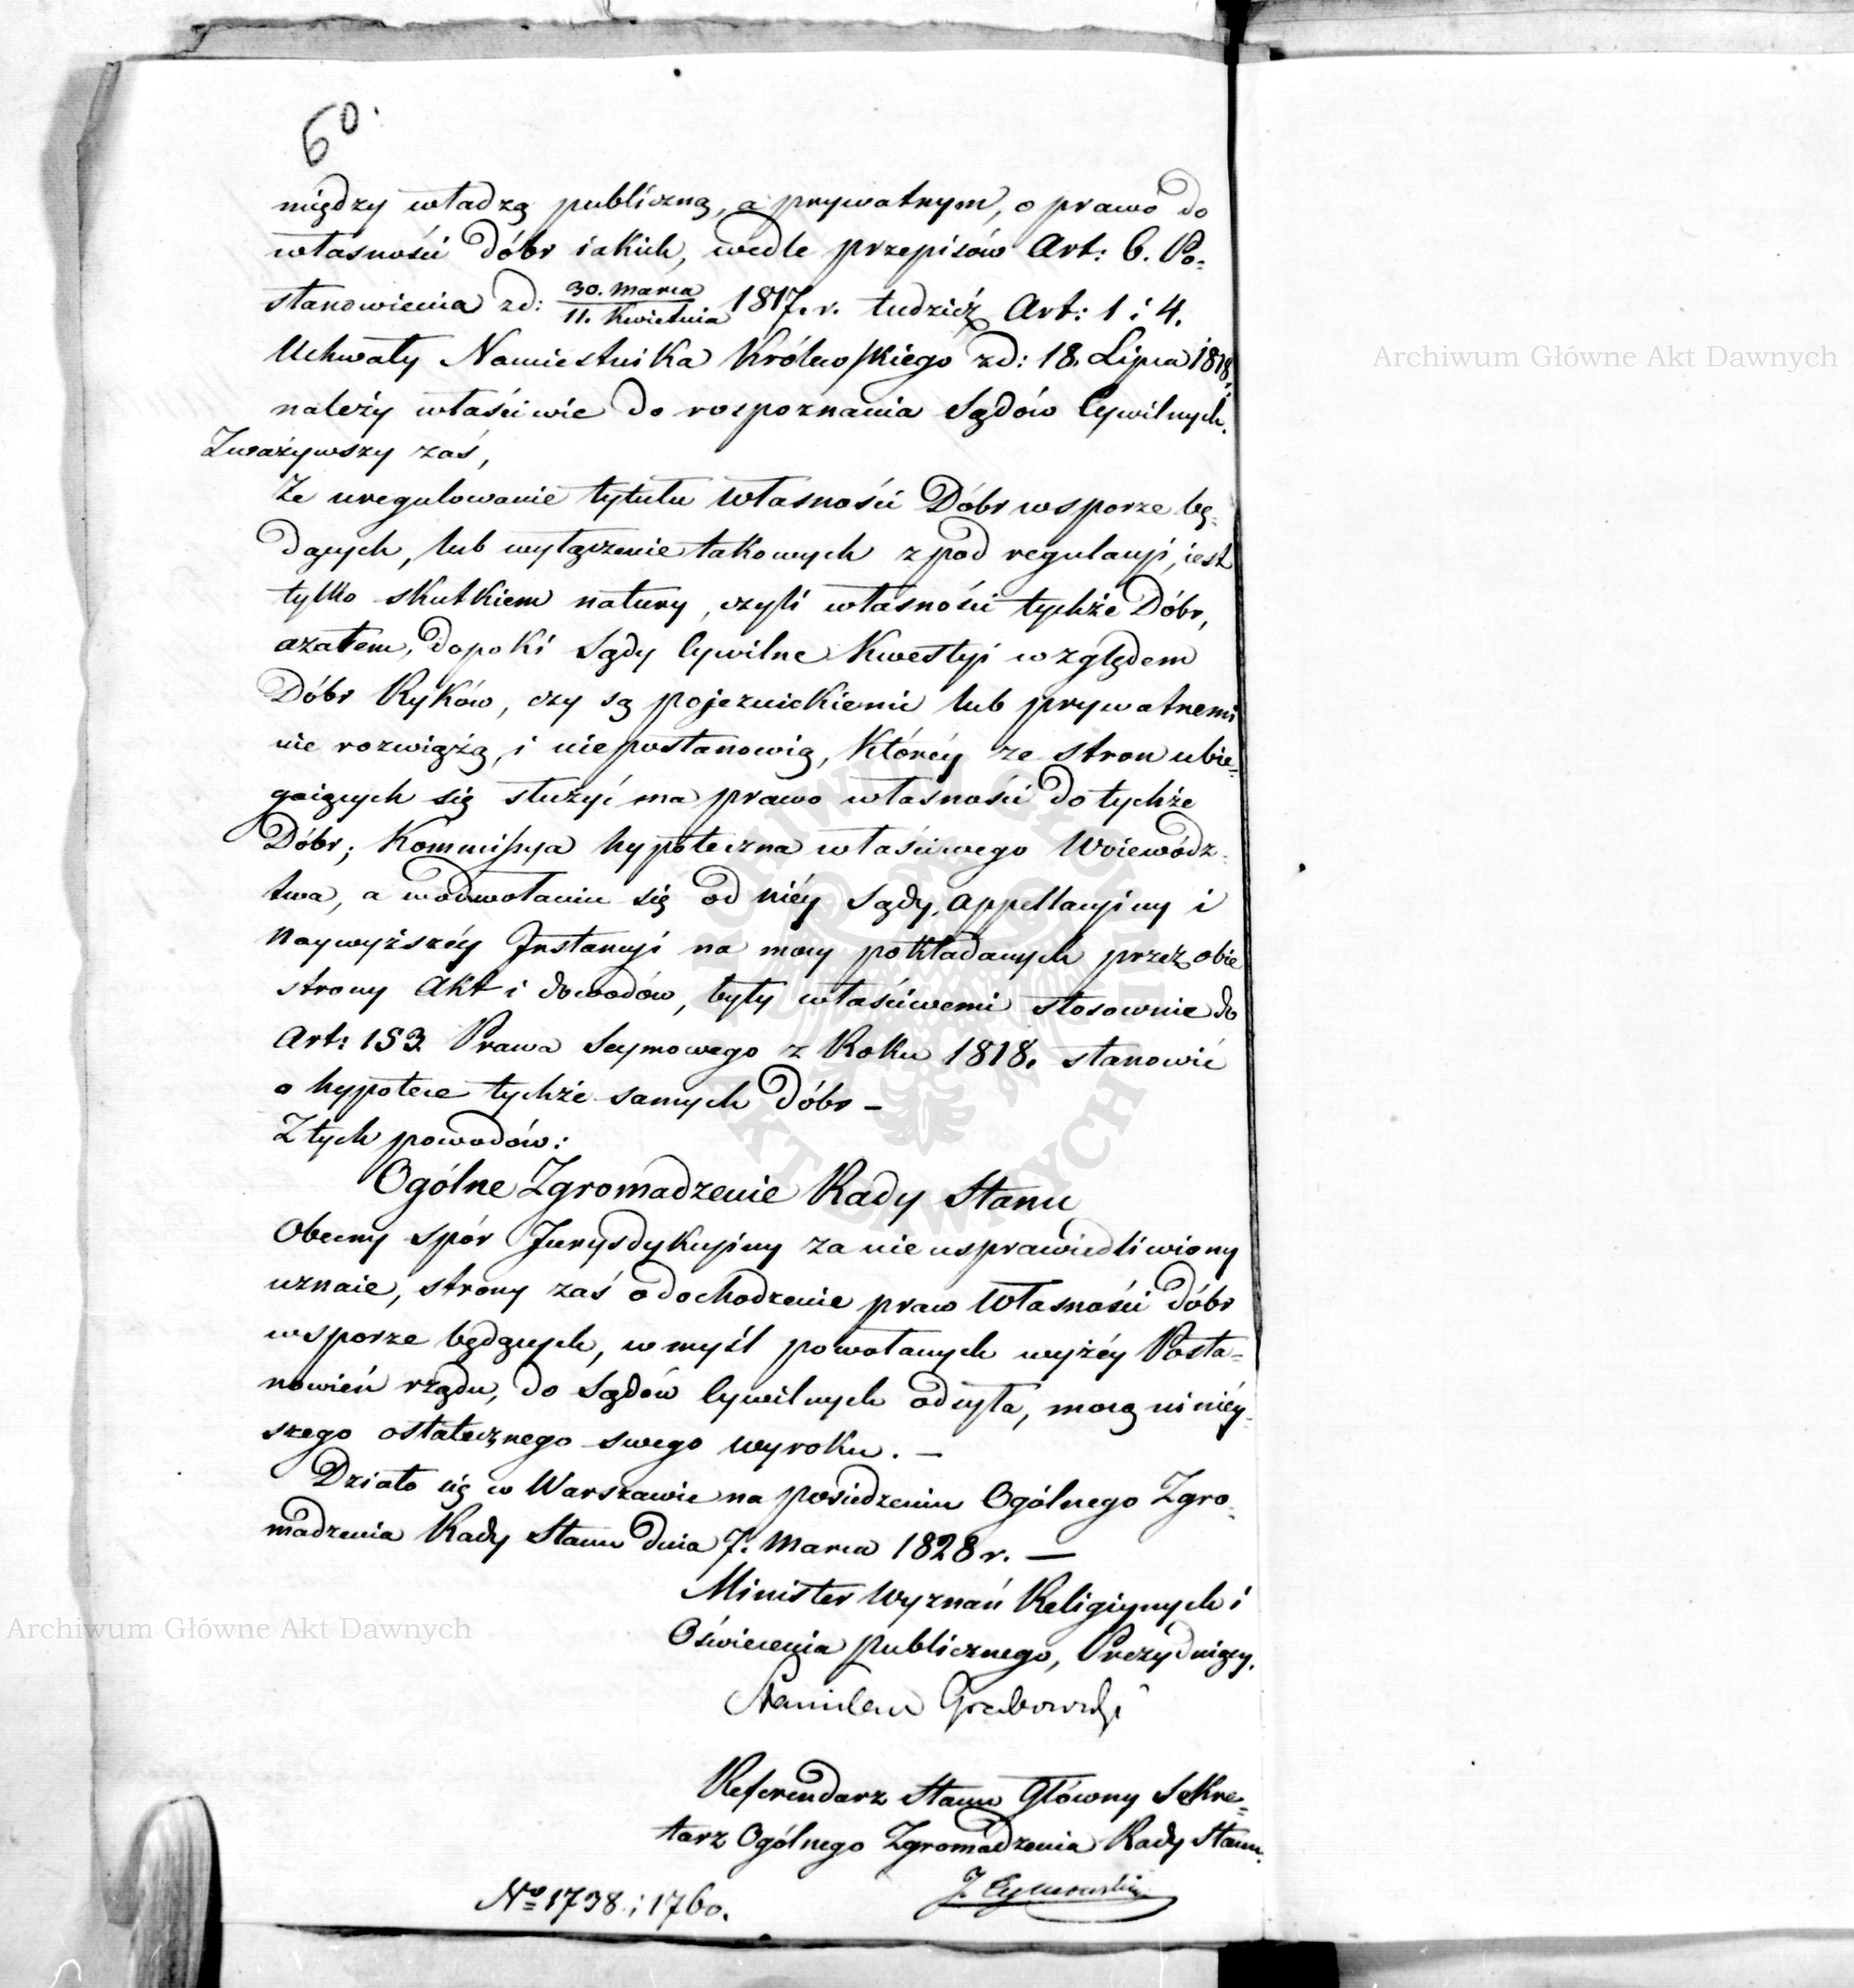 60.
między władzą publiczną, a prywatnym, o prawo do
własności dóbr iakich, wedle przepisów Art: 6. Po-
stanowienia zd: 30. Marca / 11. Kwietnia 1817. r. tudzież Art: 1 i 4.
Uchwały Namiestnika Królewskiego zd: 18. Lipca 1818.
należy właściwie do rospoznania Sądów Cywilnych.
Zważywszy zaś,
Że uregulowanie tytułu własności Dóbr w sporze bę-
dących, lub wyłączenie takowych z pod regulacyi, iest
tylko skutkiem natury, czyli własności tychże Dóbr,
azatem, dopoki Sądy Cywilne Kwestyi względem
Dóbr Ryków, czy są pojezuickiemi lub prywatnemi
nie rozwiążą, i nie postanowią, któréy ze stron ubie-
gaiących się służyć ma prawo własności do tychże
Dóbr; Kommissya hypoteczna właściwego Woiewódz-
twa, a w odwołaniu się od niéy Sądy, Appellacyiny i
Naywyższéy Instancyi na mocy pokładanych przez obie
strony Akt i dowodów, były właściwemi stosownie do
Art: 153. Prawa Seymowego z Roku 1818. stanowić
o hypotece tychże samych Dóbr –
Z tych powodów:
Ogólne Zgromadzenie Rady Stanu
Obecny spór Jurysdykcyiny za nieusprawiedliwiony
uznaie, strony zaś o dochodzenie praw własności dóbr
w sporze będących, w myśl powołanych wyżéy Posta-
nowień rządu, do Sądów Cywilnych odsyła, mocą ninièy-
szego ostatecznego swego wyroku. –
Działo się w Warszawie na posiedzeniu Ogólnego Zgro-
madzenia Rady Stanu dnia 7. Marca 1828 r. –
Minister Wyznań Religiynych i
Oświecenia publicznego, Prezyduiący.
Stanisław Grabowski
Referendarz Stanu Główny Sekre-
tarz Ogólnego Zgromadzenia Rady Stanu.
J.
No 1738 i 1760.
Archiwum Główne Akt Dawnych
Archiwum Główne Akt Dawnych
ARCHIWUM GŁÓWNE AKT DAWNYCH